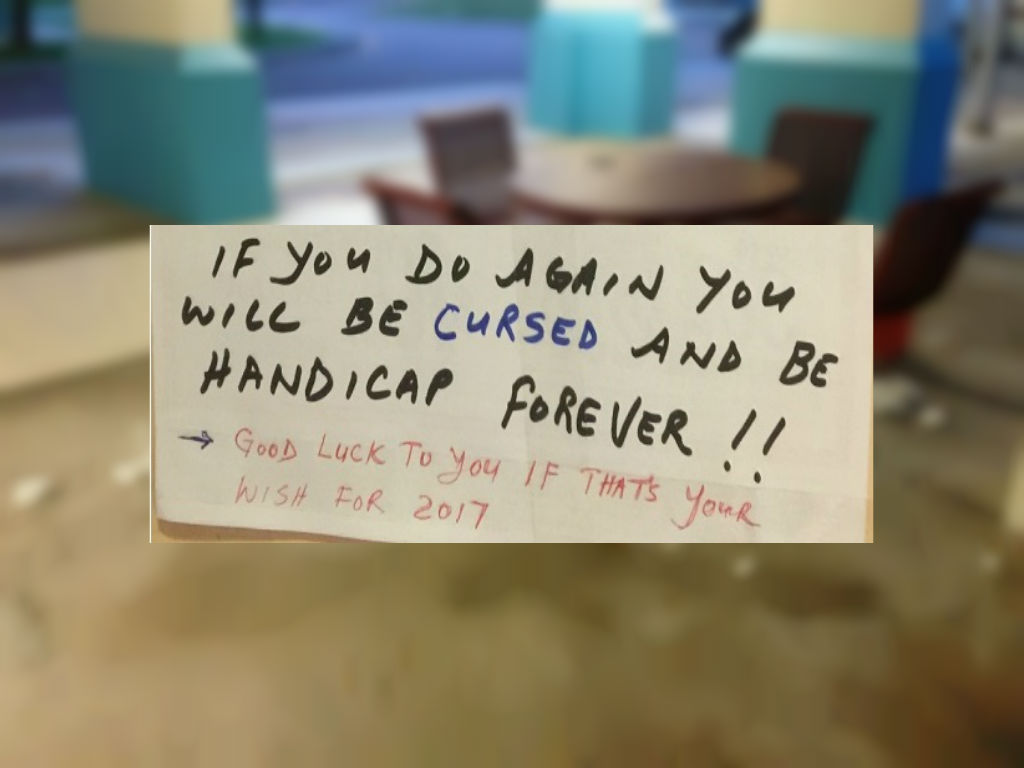 IF YOU DO AGAIN YOU
WILL BE CURSED AND BE
HANDICAP FOREVER !!
→ GOOD LUCK TO YOU IF THAT'S YOUR
WISH FOR 2017